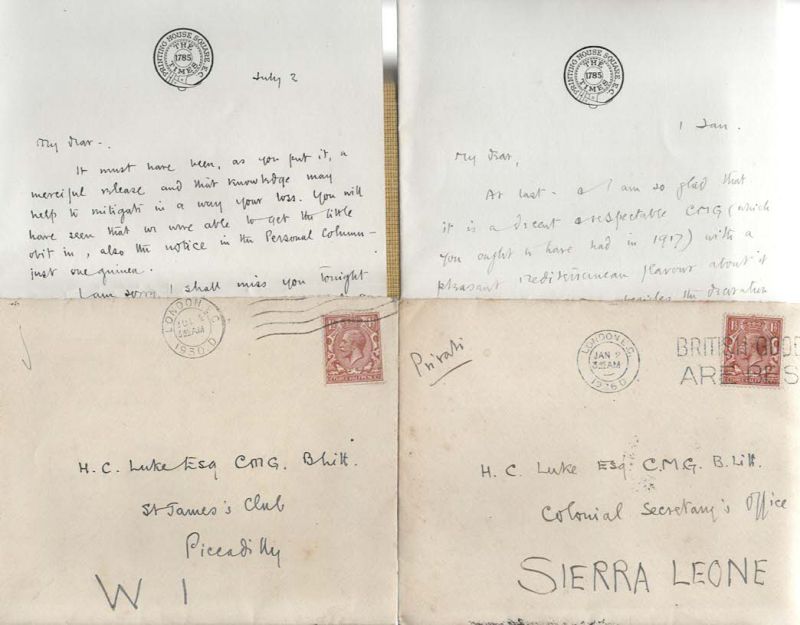 PRINTING HOUSE SQUARE, E.C.
THE
1785
TIMES
July 2
My dear -.
It must have been, as you put it, a
merciful release and that knowledge may
help to mitigate in a way your loss. You will
have seen that we were able to get the little
obit in, also the notice in the Personal Column -
just one guinea.
I am sorry I shall miss you tonight
LONDON E.C.
JUL 2
3.15AM
1930
D
H. C. Luke Esq CMG. B Litt.
St James's Club
Piccadilly
W 1
PRINTING HOUSE SQUARE, E.C.
THE
1785
TIMES
1 Jan.
My dear,
At last - & I am so glad that
it is a decent & respectable CMG (which
you ought to have had in 1917) with a
pleasant Mediterranean flavour about it
besides the
Private
LONDON E.C.
JAN
1926
D
BRITISH GOODS
ARE BES
H. C. Luke Esq. C.M.G. B. Litt.
Colonial Secretary's Office
SIERRA LEONE